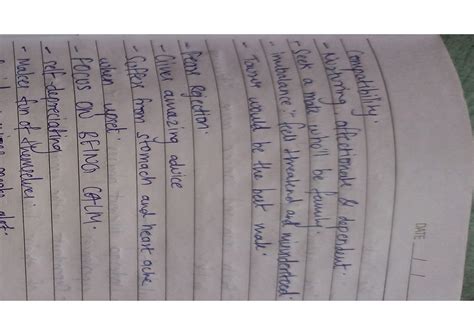 DATE / /
Compatibility.
- Nurturing, affectionate & dependent.
- Seek a mate who'll be family.
- imbalance: feel threatened and misunderstood
- Taurus would be the best mate.
- Pense rejection.
- Gives amazing advice
- Suffer from stomach and heart ache
when upset.
- FOCUS ON BEING CALM.
- self-depreciating
- Makes fun of themselves.